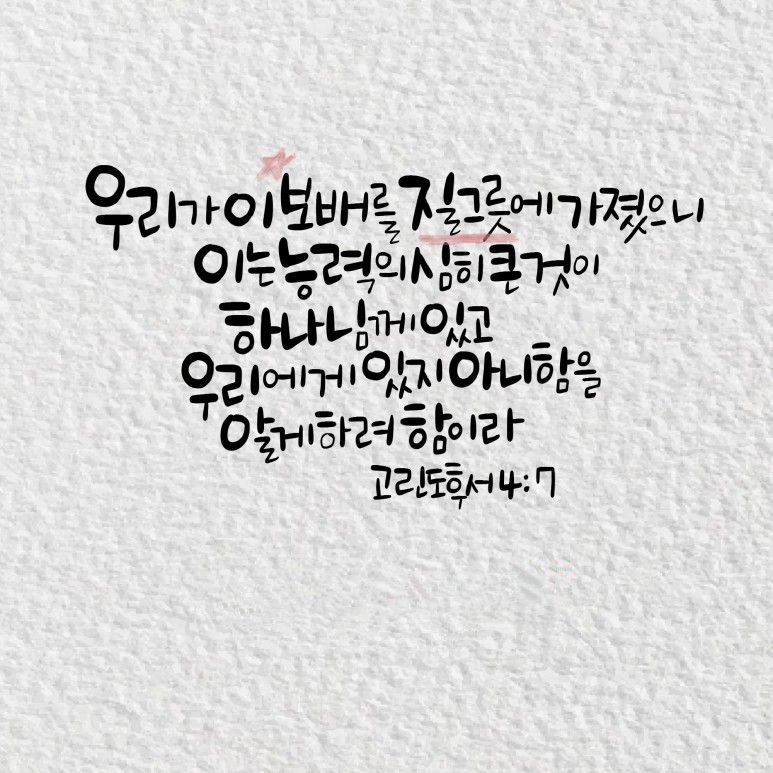 우리가 이 보배를 질그릇에 가졌으니
이는 능력의 심히 큰 것이
하나님께 있고
우리에게 있지 아니함을
알게 하려 함이라
고린도후서 4:7